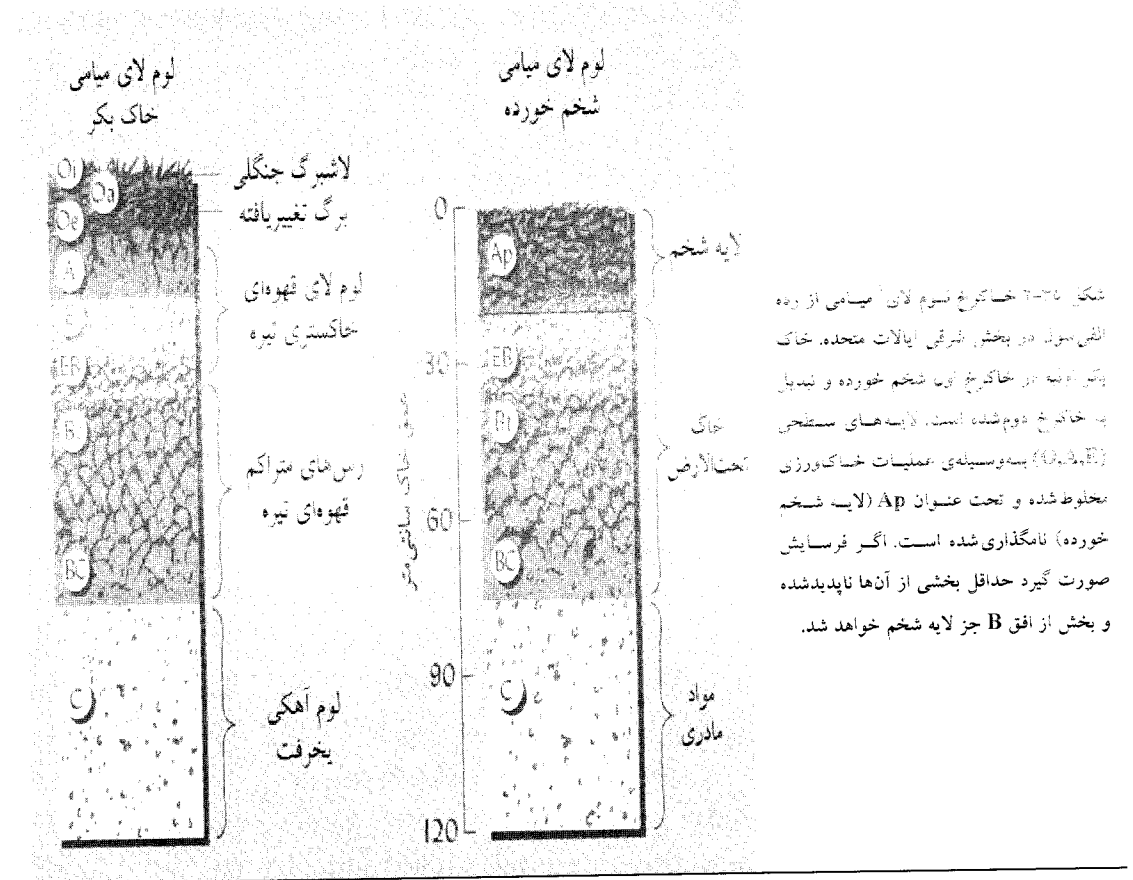 لوم لای میامی
خاک بکر
Oi
Oa
Oe
A
EB
B
BC
C
لاشبرگ جنگلی
برگ تغییریافته
لوم لای قهوه‌ای
خاکستری تیره
رس‌های متراکم
قهوه‌ای تیره
لوم آهکی
یخرفت
لوم لای میامی
شخم خورده
0
30
60
90
120
عمق خاک سانتی‌متر
Ap
EB
Bt
BC
C
لایه شخم
خاک
تحت‌الارض
مواد
مادری
شکل خاکرخ لوم لای میامی از رده
الفی‌سول در بخش شرقی ایالات متحده. خاک
بکر اولیه در خاکرخ اول شخم خورده و تبدیل
به خاکرخ دوم‌شده است. لایه‌های سطحی
(O,A,E) به‌وسیله‌ی عملیات خاک‌ورزی
مخلوط‌شده و تحت عنوان Ap (لایه شخم
خورده) نامگذاری‌شده است. اگر فرسایش
صورت گیرد حداقل بخشی از آن‌ها ناپدیدشده
و بخش از افق B جز لایه شخم خواهد شد.